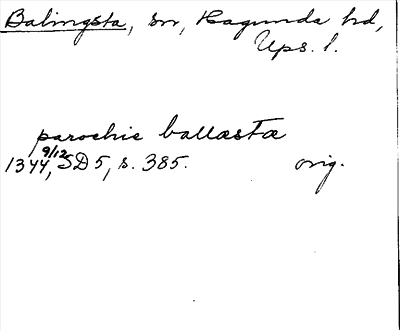 Balingsta, sn, Hagunda hd,
Ups. l.
parochie ballastæ
1344 9/12, SD 5, s. 385. orig.